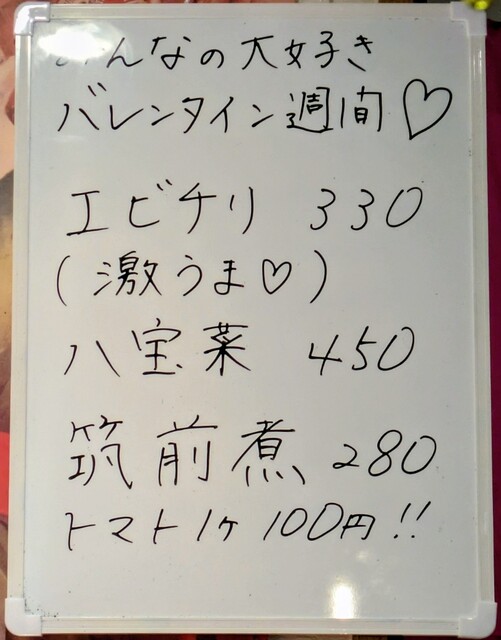 みんなの大好き
バレンタイン週間♡
エビチリ 330
(激うま♡)
八宝菜 450
筑前煮 280
トマト1ヶ 100円!!